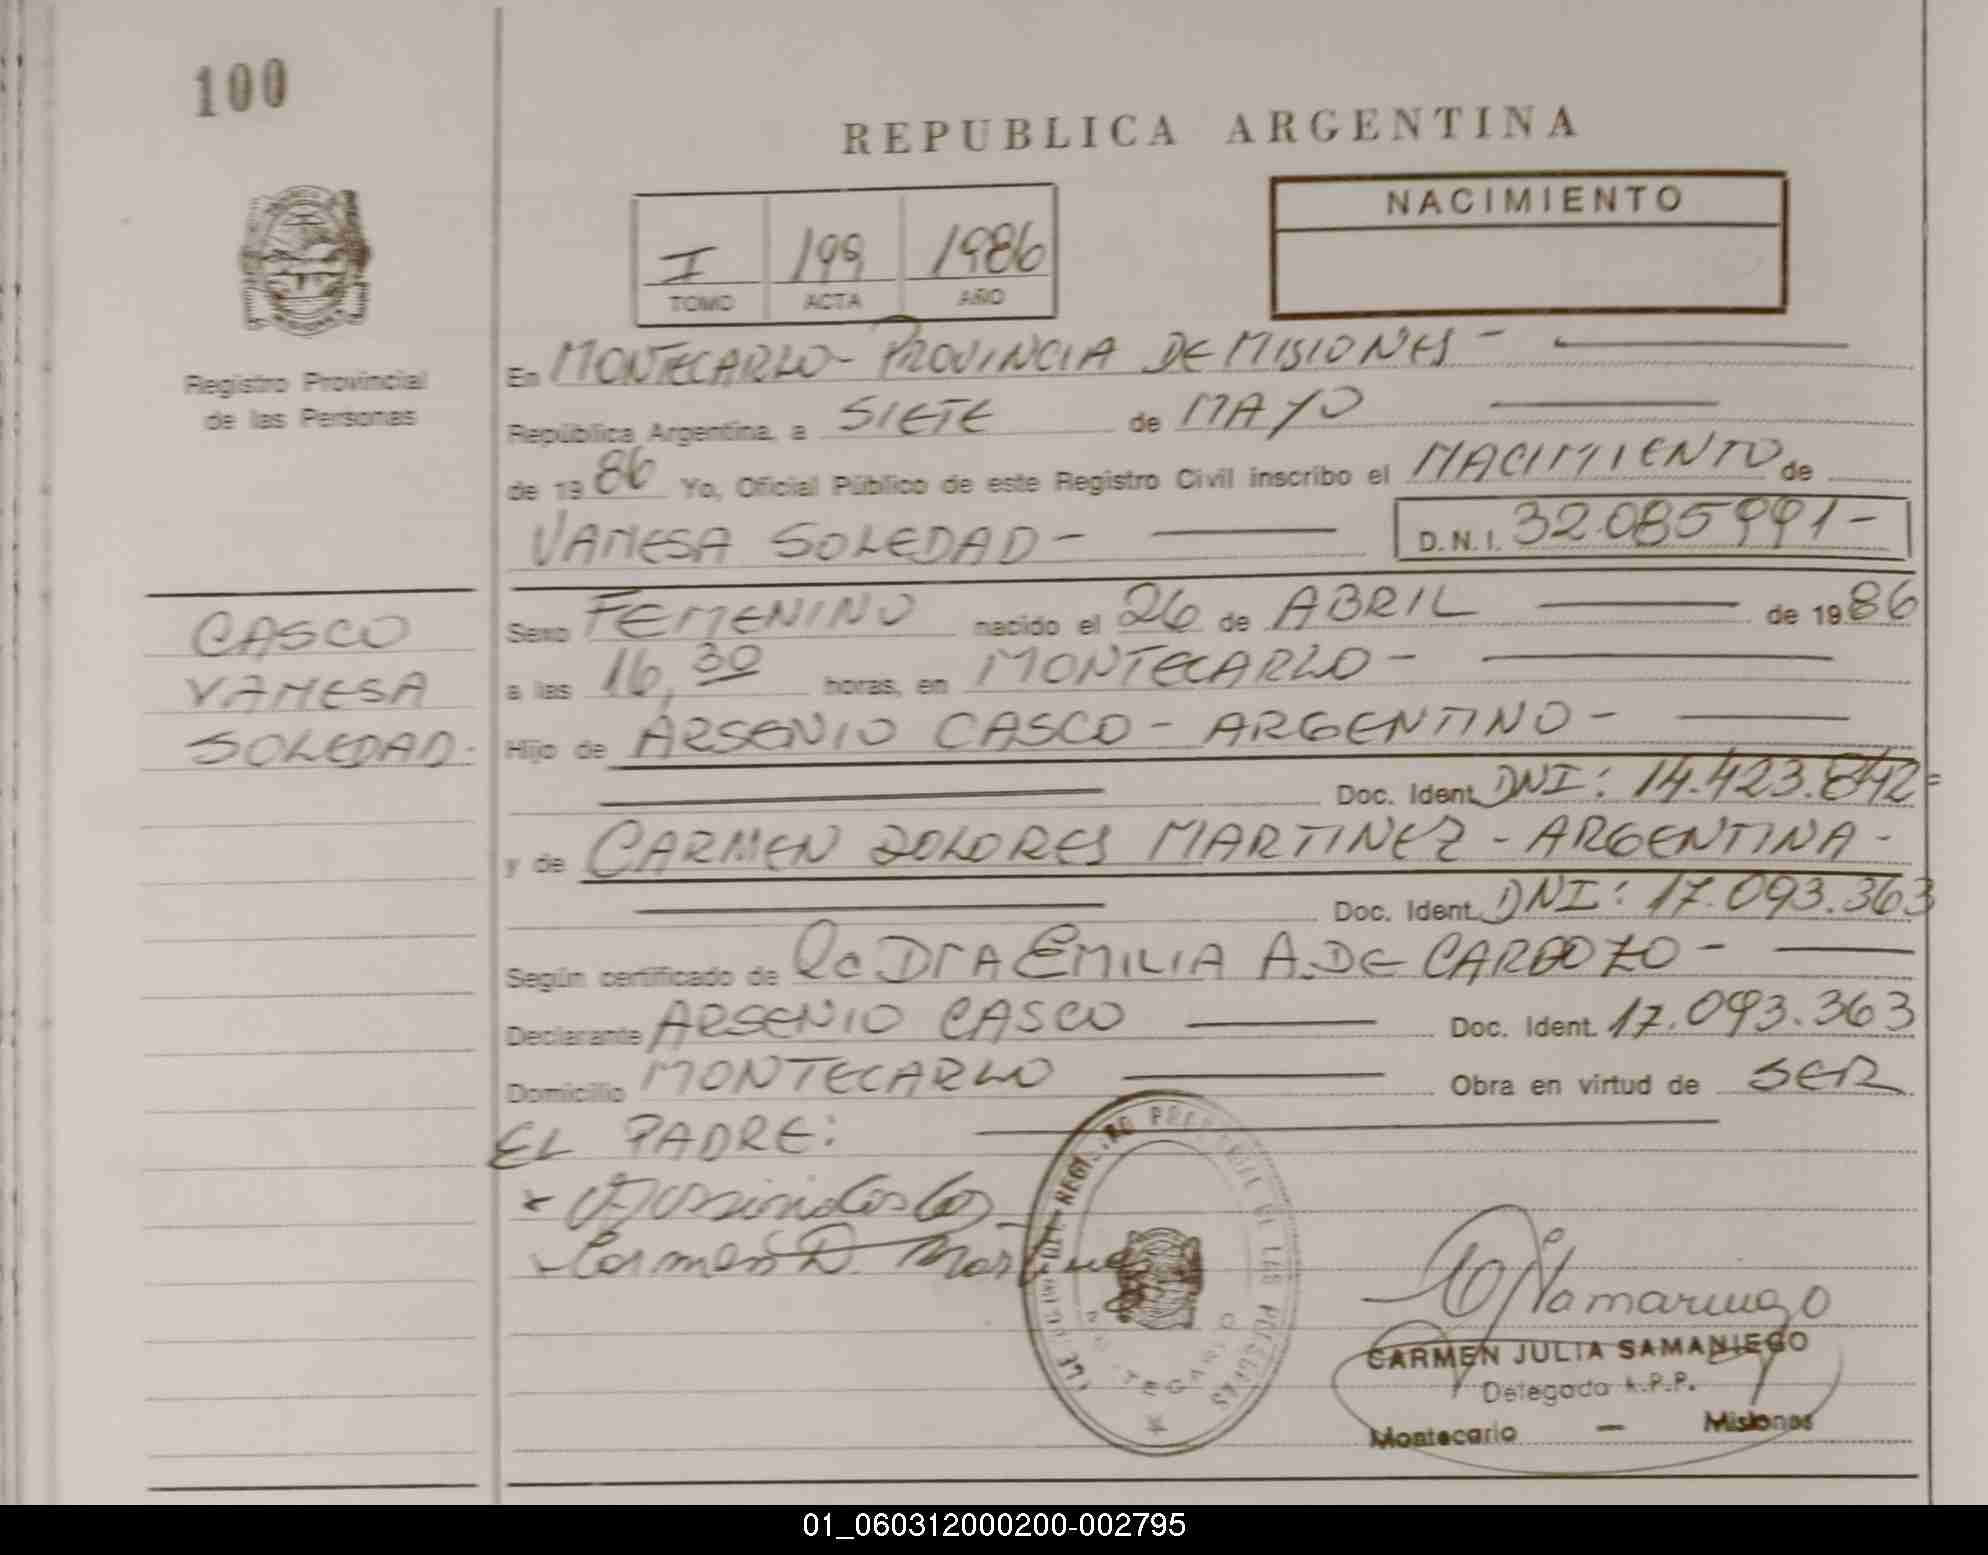 100
REPUBLICA ARGENTINA
NACIMIENTO
I 199 1986
TOMO ACTA AÑO
Registro Provincial
de las Personas
En MONTECARLO - PROVINCIA DE MISIONES -
República Argentina, a SIETE de MAYO
de 1986 Yo, Oficial Público de este Registro Civil inscribo el NACIMIENTO de
VANESA SOLEDAD - D.N.I. 32.085991 -
CASCO
VANESA
SOLEDAD.
Sexo FEMENINO nacido el 26 de ABRIL de 1986
a las 16,30 horas, en MONTECARLO -
Hijo de ARSENIO CASCO - ARGENTINO -
Doc. Ident. DNI: 14.423.842 =
y de CARMEN DOLORES MARTINEZ - ARGENTINA -
Doc. Ident. DNI: 17.093.363
Según certificado de DRA EMILIA A. DE CARDOZO -
Declarante ARSENIO CASCO Doc. Ident. 17.093.363
Domicilio MONTECARLO Obra en virtud de SER
EL PADRE:
Carmen D. Martinez
REGISTRO PROVINCIAL DE LAS PERSONAS
CARMEN JULIA SAMANIEGO
Delegada R.P.P.
Montecarlo - Misiones
01_060312000200-002795